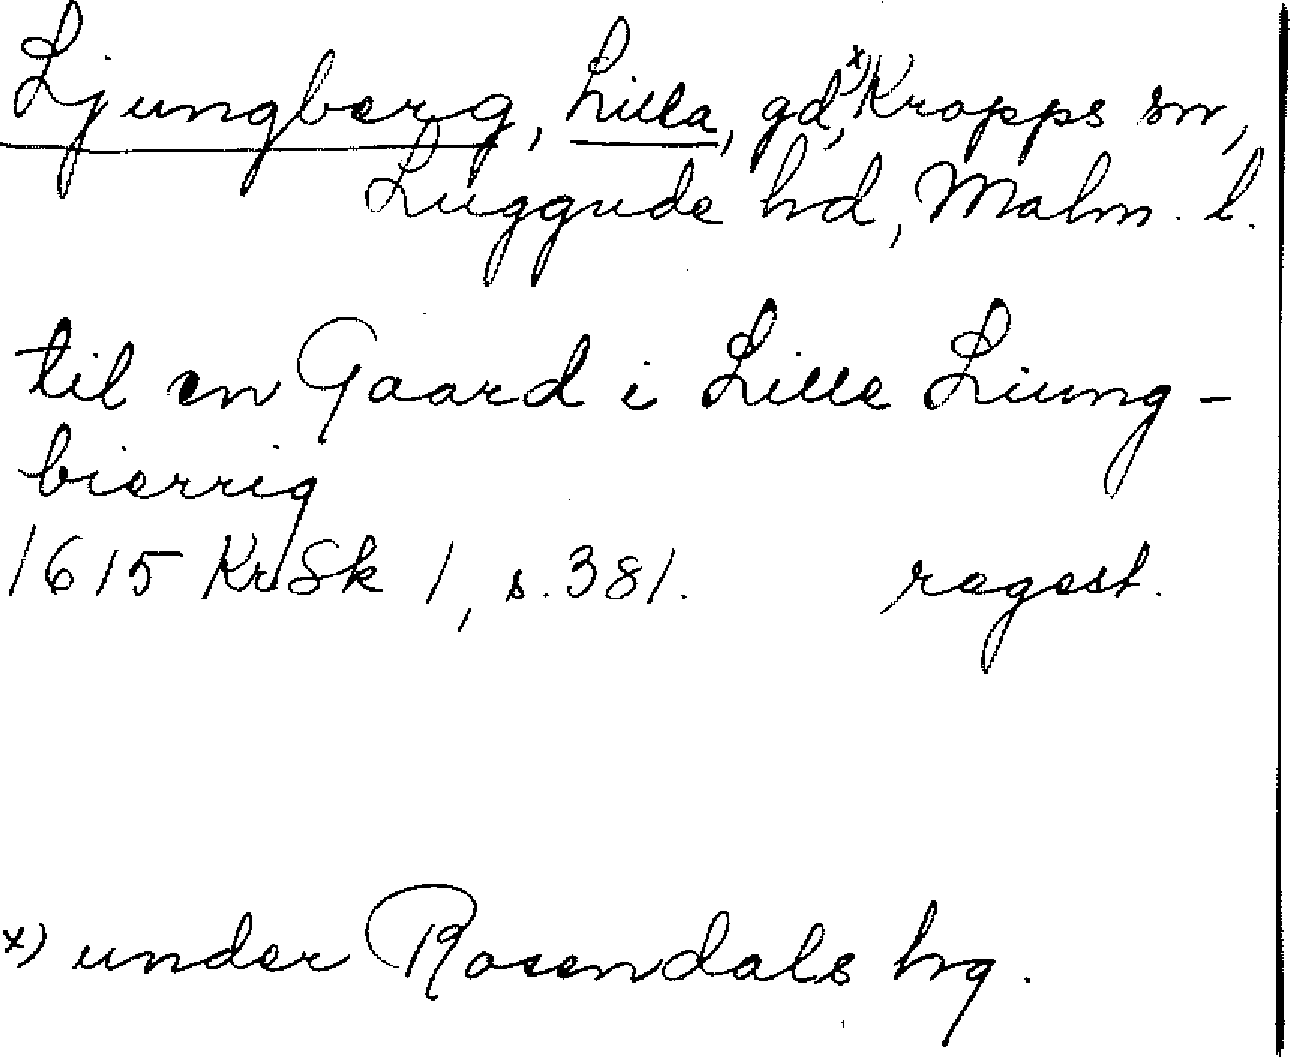 Ljungberg, Lilla, gd,ˣ⁾ Kropps sn,
Luggude hd, Malm. l.
til en Gaard i Lille Liung-
bierrig
1615 KrSk 1, s. 381. regest.
x) under Rosendals hg.